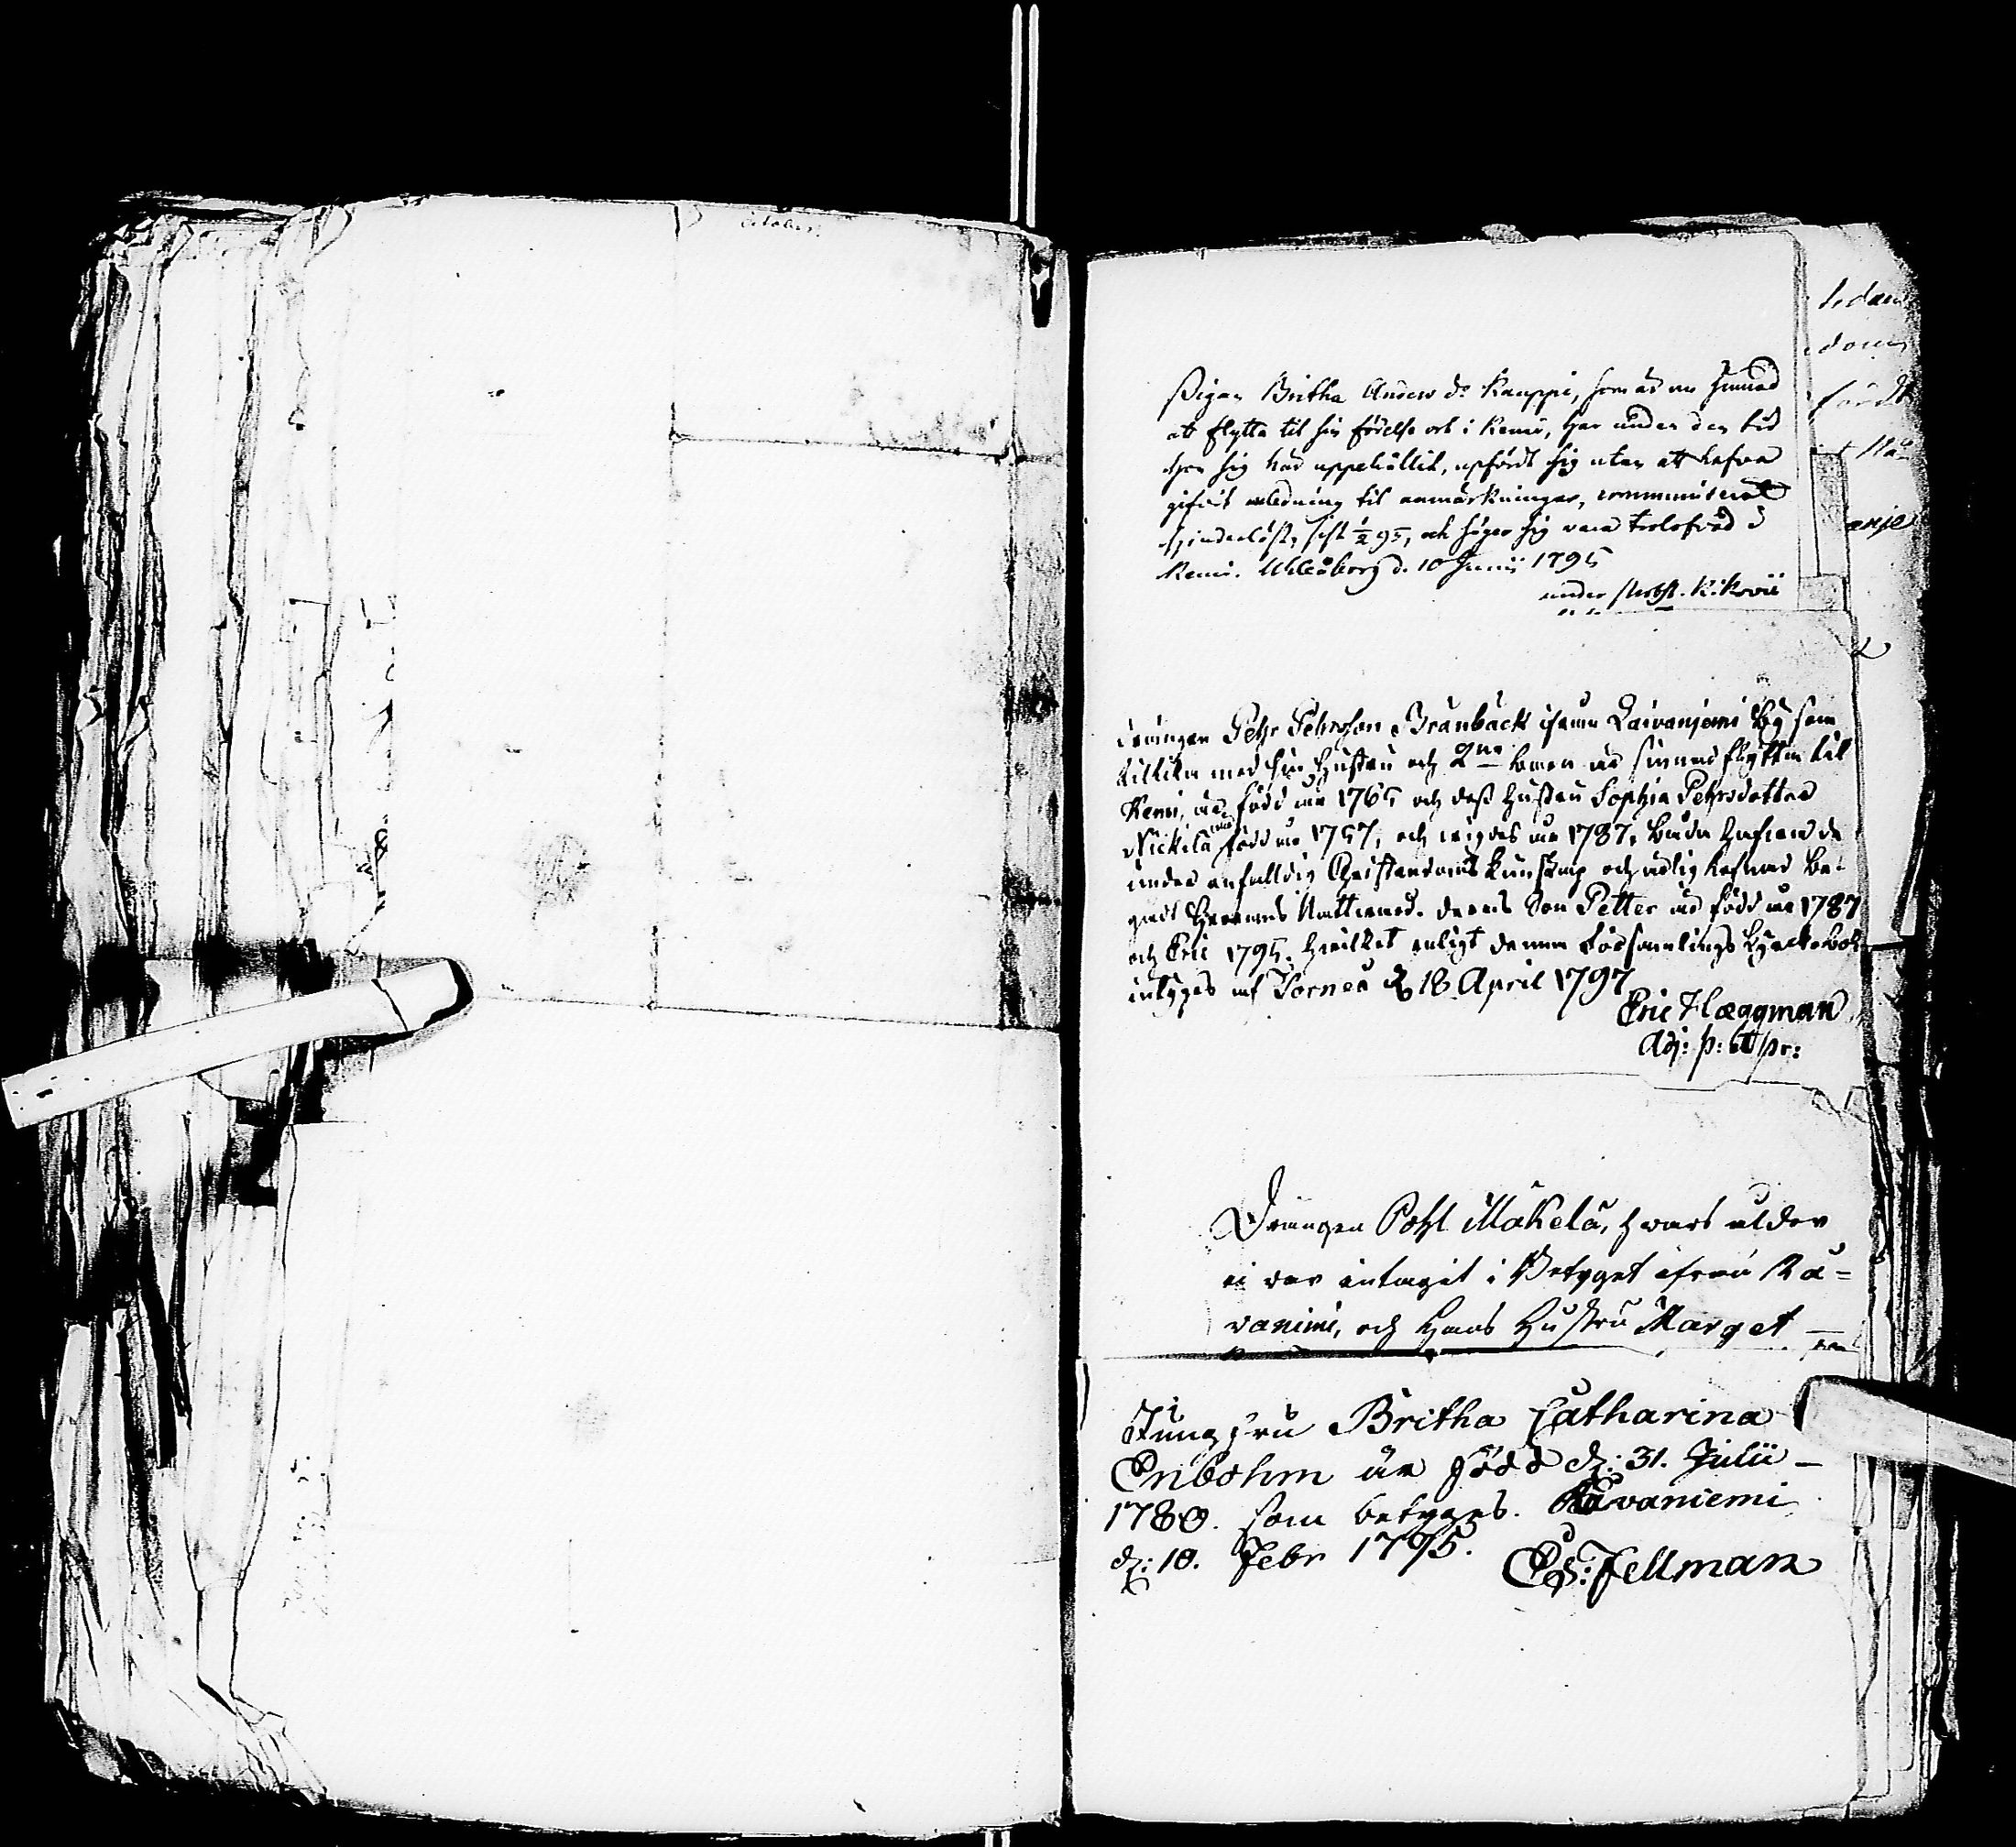 October.
Pigan Britha Anders d:r Kauppi, som är nu sinnad
att flytta til sin födelse ort i Kemi, har under den tid
hon sig här uppehållit, upfördt sig utan att hafva
gifvit anledning til anmärkningar, communicerat
hinderlöst, sist 1/2 95, och säger sig vara trolofvad i
Kemi. Uhleåborg d. 10 Junii 1795
under
Drängen Pehr Pehrsson Branback ifrån Laivaniemi By som
tillika med sin Hustru och 2ne barn är sinnad flytta til
Kemi, är född år 1765 och dess Hustru Sophia Pehrsdotter
Nickilä född år 1757, och wigdes år 1787, båda hafwande
under enfalldig Christendoms kunskap och ärlig lefnad be-
gådt Herrans Nattward. deras Son Petter är född år 1787
och Eric 1795. Hwilket enligt denna Församlings Kyrckobok
intyges af Torneå d 18 April 1797
Eric Hæggman
Adj: p: et pr:
Drängen Pohl Mäkelä, hwars ålder
ei var intagit i Betyget ifrån Rå-
vaniemi, och Hans Hustru Marget
Jungfru Britha Catharina
Enbohm är född d: 31. Julii
1780. som betyges. Råvaniemi
d: 10. Febr 1795.
Es: Fellman
anje